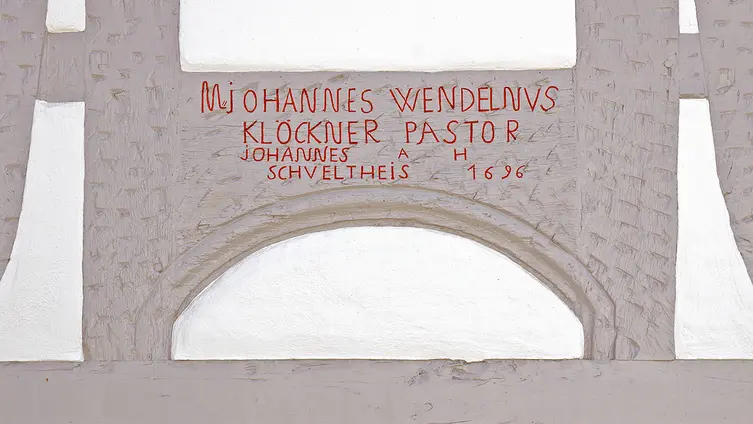 Mj OHANNES WENDELNVS
KLÖCKNER PASTOR
jOHANNES A H
SCHVELTHEiS 1696